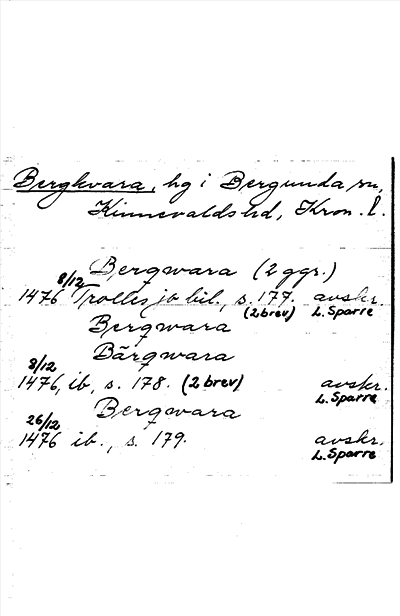 Bergkvara, hg i Bergunda sn,
Kinnevalds hd, Kron. l.
Bergwara (2 ggr.)
8/12
1476 Trolles jo bil., s. 177. avskr.
(2 brev) L. Sparre
Bergwara
Bärgwara
8/12
1476, ib, s. 178. (2 brev) avskr.
L. Sparre
Bergwara
26/12
1476 ib., s. 179. avskr.
L. Sparre